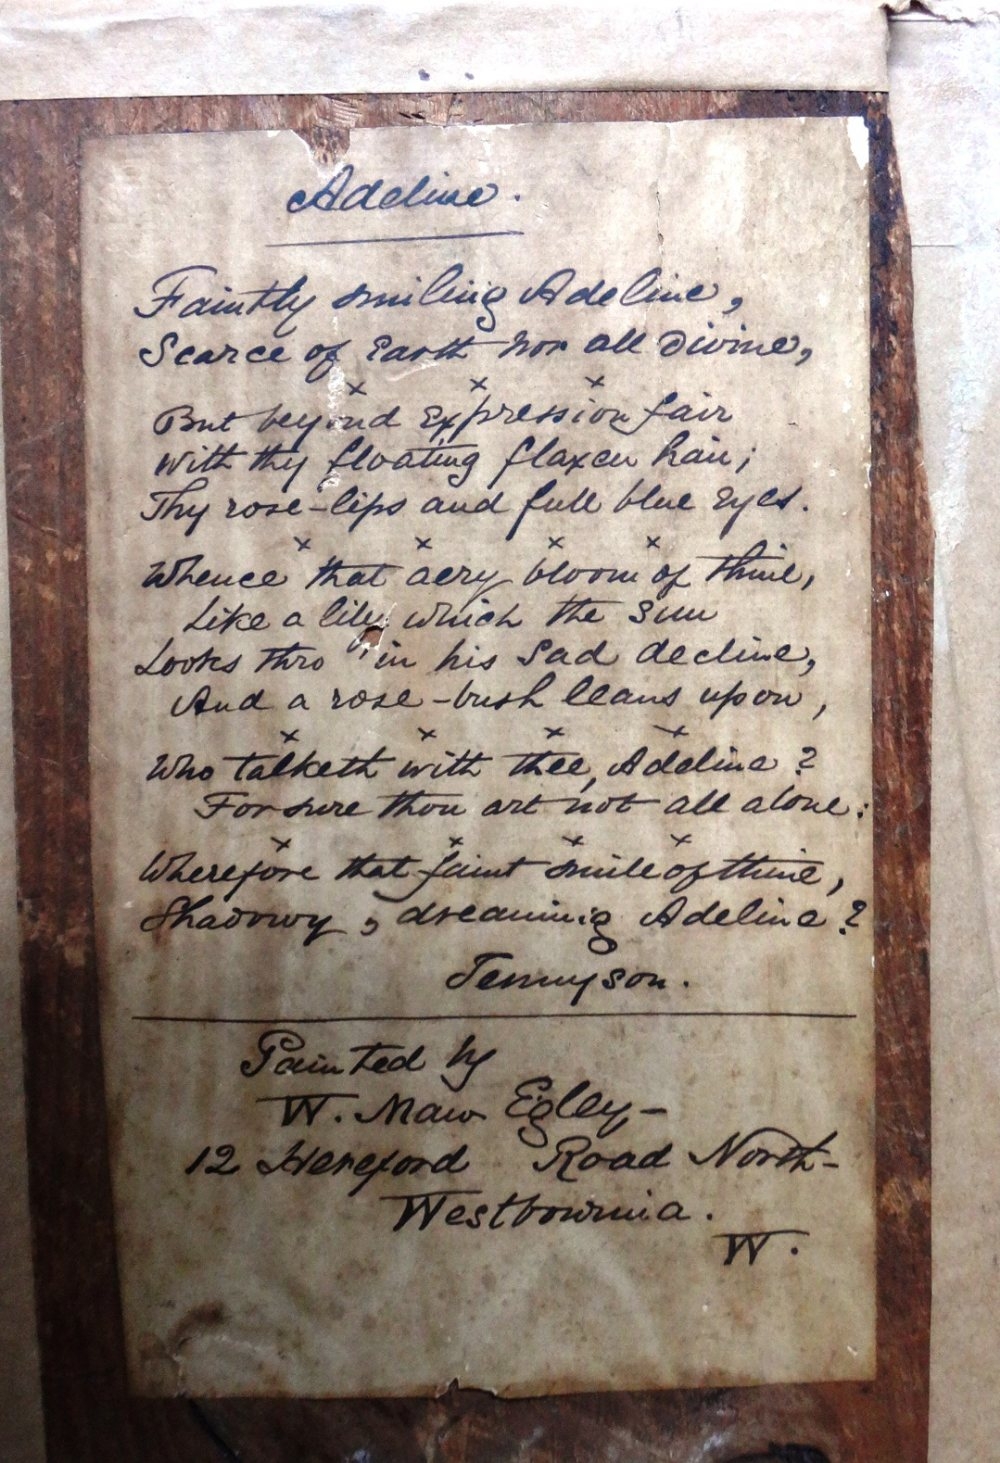 Adeline.
Faintly smiling Adeline,
Scarce of Earth nor all Divine,
x x x
But beyond Expression fair
With thy floating flaxen hair;
Thy rose-lips and full blue Eyes.
x x x x
Whence that aery bloom of thine,
Like a lily which the Sun
Looks thro' in his Sad decline,
And a rose-bush leans upon,
x x x x
Who talketh with thee, Adeline?
For sure thou art not all alone:
x x x x
Wherefore that faint smile of thine,
Shadowy, dreaming Adeline?
Tennyson.
Painted by
W. Maw Egley-
12 Hereford Road North-
Westbournia.
W.